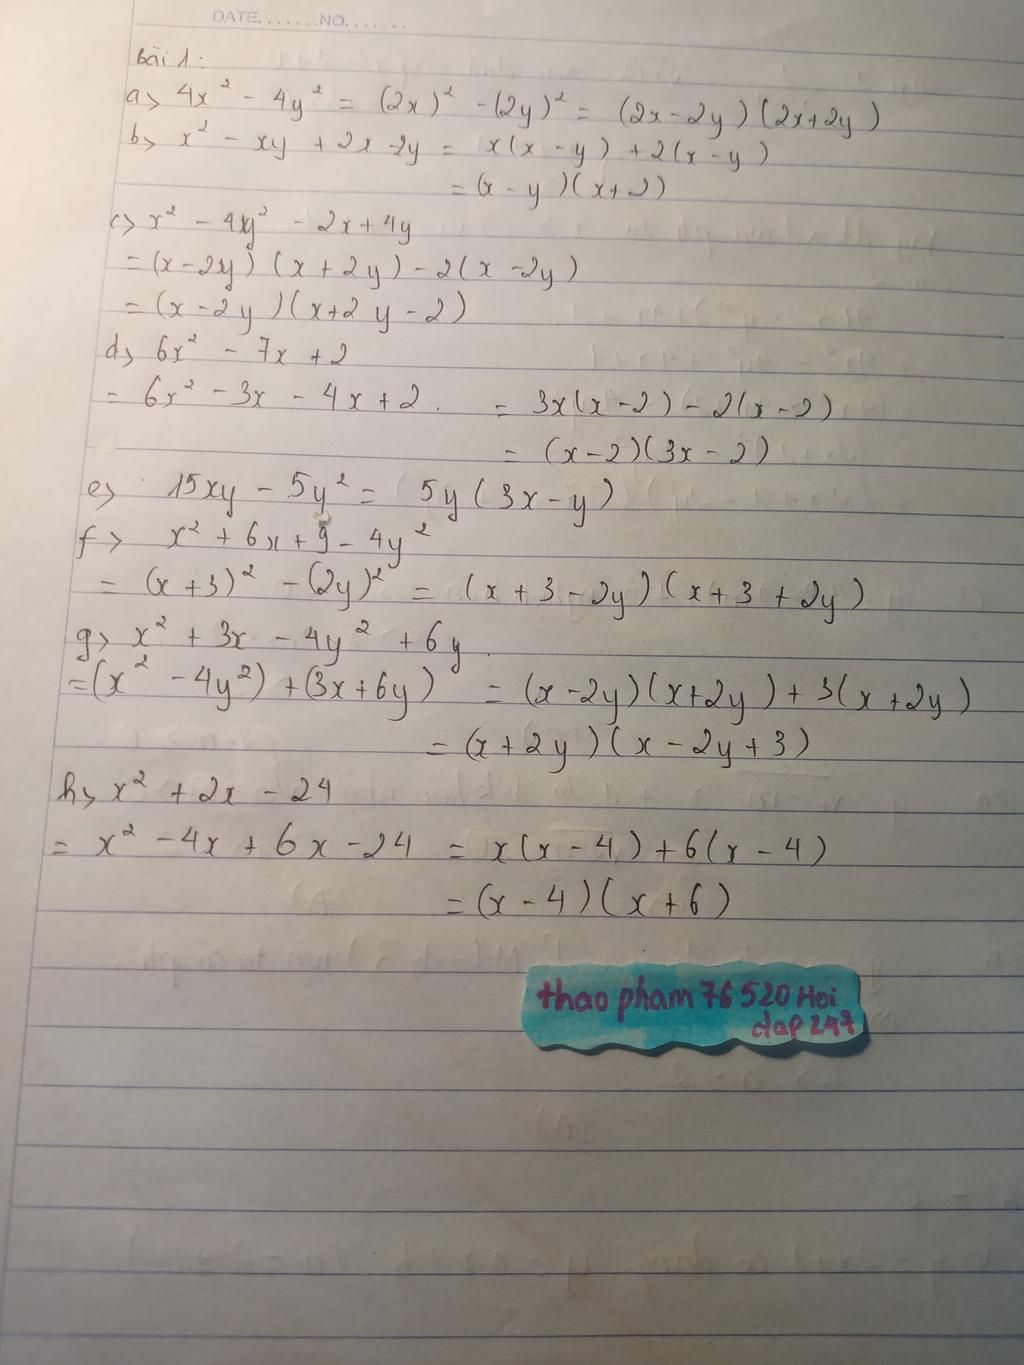 DATE.......NO.......
Bài 1:
a> 4x² - 4y² = (2x)² - (2y)² = (2x-2y)(2x+2y)
b> x² - xy + 2x - 2y = x(x - y) + 2(x - y)
= (x - y)(x+2)
c> x² - 4y² - 2x + 4y
= (x - 2y) (x + 2y) - 2(x - 2y)
= (x - 2y)(x+2y - 2)
d> 6x² - 7x + 2
= 6x² - 3x - 4x + 2. = 3x(x - 2) - 2(x - 2)
= (x - 2)(3x - 2)
e> 15xy - 5y² = 5y(3x - y)
f> x² + 6x + 9 - 4y²
= (x + 3)² - (2y)² = (x + 3 - 2y)(x + 3 + 2y)
g> x² + 3x - 4y² + 6y.
= (x² - 4y²) + (3x + 6y) = (x - 2y)(x + 2y) + 3(x + 2y)
= (x + 2y)(x - 2y + 3)
h> x² + 2x - 24
= x² - 4x + 6x - 24 = x(x - 4) + 6(x - 4)
= (x - 4)(x + 6)
thao pham 76 520 Hoi
dap 247